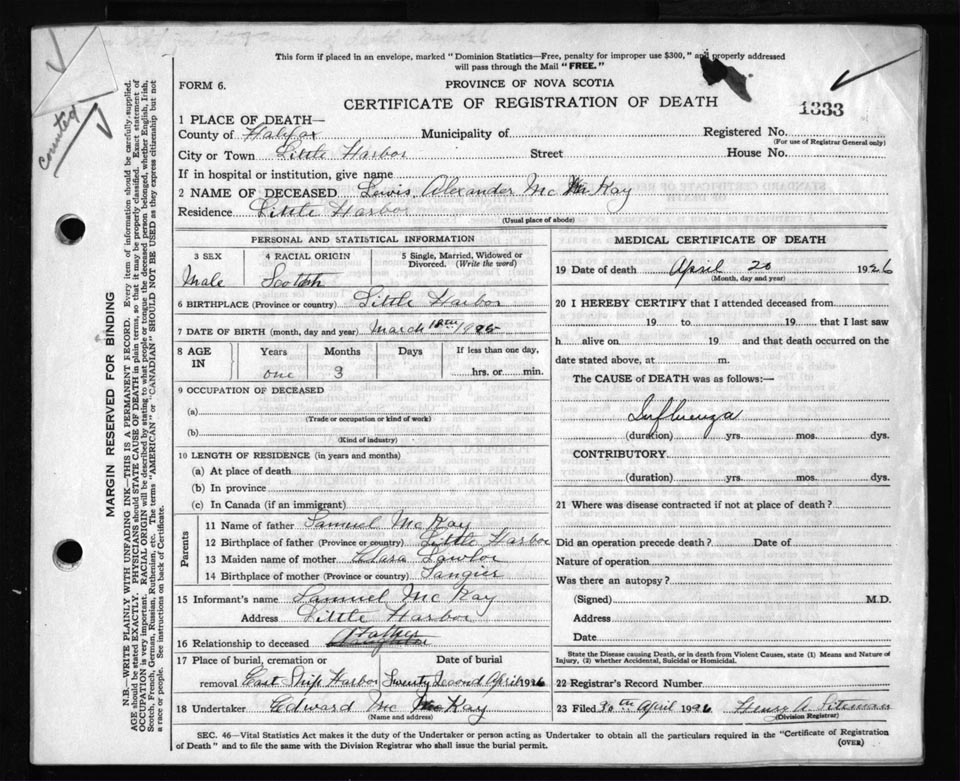 This form if placed in an envelope, marked "Dominion Statistics—Free, penalty for improper use $300," and properly addressed
will pass through the Mail "FREE."
FORM 6.
PROVINCE OF NOVA SCOTIA
CERTIFICATE OF REGISTRATION OF DEATH
1333
counted
1 PLACE OF DEATH—
County of Halifax Municipality of Registered No.
(For use of Registrar General only)
City or Town Little Harbor Street House No.
If in hospital or institution, give name
2 NAME OF DECEASED Lewis Alexander Mc Kay
Residence Little Harbor
(Usual place of abode)
PERSONAL AND STATISTICAL INFORMATION
3 SEX 4 RACIAL ORIGIN 5 Single, Married, Widowed or
Divorced. (Write the word)
Male Scotch
6 BIRTHPLACE (Province or country) Little Harbor
7 DATE OF BIRTH (month, day and year) March
8 AGE IN Years Months Days If less than one day,
one 3 hrs. or min.
9 OCCUPATION OF DECEASED
(a)
(Trade or occupation or kind of work)
(b)
(Kind of industry)
10 LENGTH OF RESIDENCE (in years and months)
(a) At place of death
(b) In province
(c) In Canada (if an immigrant)
Parents
11 Name of father Samuel Mc Kay
12 Birthplace of father (Province or country) Little Harbor
13 Maiden name of mother Clara Lawlor
14 Birthplace of mother (Province or country) Tangier
15 Informant's name Samuel Mc Kay
Address Little Harbor
16 Relationship to deceased Father
17 Place of burial, cremation or Date of burial
removal East Ship Harbor Twenty Second April 1926
18 Undertaker Edward Mc Kay
(Name and address)
MEDICAL CERTIFICATE OF DEATH
19 Date of death April 20 1926
(Month, day and year)
20 I HEREBY CERTIFY that I attended deceased from
19 to 19 that I last saw
h alive on 19 and that death occurred on the
date stated above, at m.
The CAUSE of DEATH was as follows:—
Influenza
(duration) yrs. mos. dys.
CONTRIBUTORY
(duration) yrs. mos. dys.
21 Where was disease contracted if not at place of death?
Did an operation precede death? Date of
Nature of operation
Was there an autopsy?
(Signed) M.D.
Address
Date
State the Disease causing Death, or in death from Violent Causes, state (1) Means and Nature of
Injury, (2) whether Accidental, Suicidal or Homicidal.
22 Registrar's Record Number
23 Filed 30th April 1926 Henry A. Siteman
(Division Registrar)
SEC. 46—Vital Statistics Act makes it the duty of the Undertaker or person acting as Undertaker to obtain all the particulars required in the "Certificate of Registration
of Death" and to file the same with the Division Registrar who shall issue the burial permit.
(OVER)
MARGIN RESERVED FOR BINDING
N.B.—WRITE PLAINLY WITH UNFADING INK—THIS IS A PERMANENT RECORD. Every item of information should be carefully supplied.
AGE should be stated EXACTLY. PHYSICIANS should STATE CAUSE OF DEATH in plain terms, so that it may be properly classified. Exact statement of
OCCUPATION is very important. RACIAL ORIGIN will be described by stating to what people or tongue the deceased person belonged, whether English, Irish,
Scotch, French, German, Russian, Ruthenian, etc. The terms "AMERICAN" or "CANADIAN" SHOULD NOT BE USED as they express citizenship but not
a race or people. See instructions on back of Certificate.